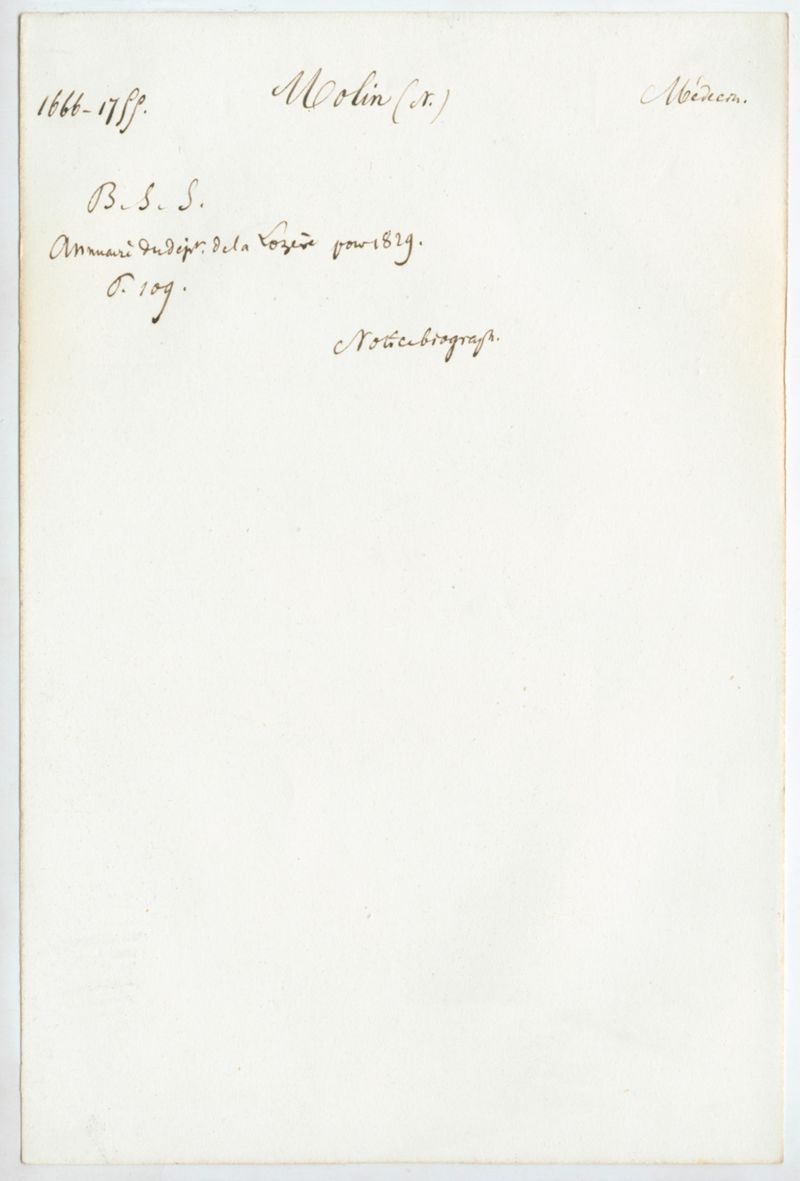 1666-1755. Molin (N.) Médecin.
B. S. S.
Annuaire du dépt. de la Lozère pour 1829.
P. 109.
Notice biograph.